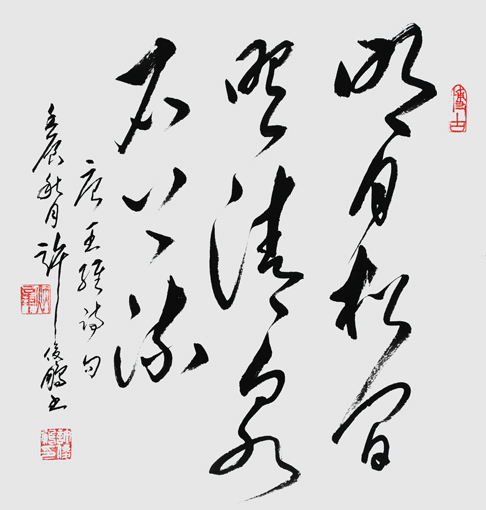 明月松间
照清泉
石上流
唐王维诗句
壬辰秋月許俊鹏书